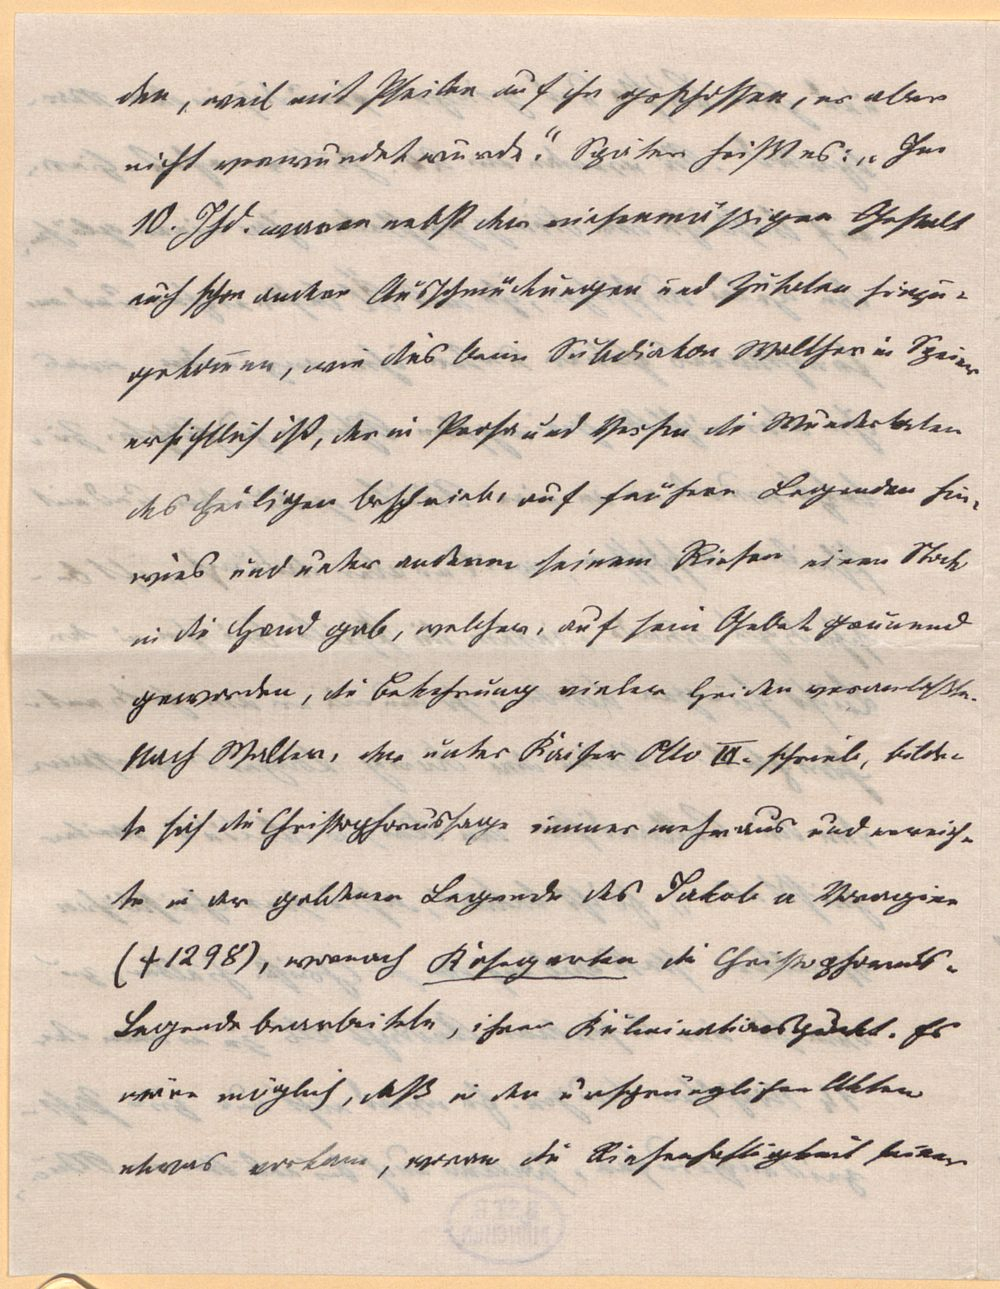 den, weil mit Pfeilen auf ihn geschossen, er aber
nicht verwundet wurde." Später heißt es: „Im
10. Jhd. waren nebst der riesenmäßigen Gestalt
auch schon andere Ausschmückungen und Zutaten hinzu-
gekom̄en, wie dies beim Subdiakon Walther in Speier
ersichtlich ist, der in Prosa und Versen die Wundertaten
des Heiligen beschrieb, auf frühere Legenden hin-
wies und unter anderem seinem Riesen einen Stock
in die Hand gab, welcher, auf sein Gebet grünend
geworden, die Bekehrung vieler Heiden veranlaßte.
Nach Walter, der unter Kaiser Otto III. schrieb, bilde-
te sich die Christophorussage immer mehr aus und erreich-
te in der goldenen Legende des Jakob a Voragine
(†1298), wonach Kosegarten die Christophorus-
Legende bearbeitete, ihren Kulminationspunkt. Es
wäre möglich, daß in den ursprünglichen Akten
etwas vorkam, woran die Riesenhaftigkeit seiner